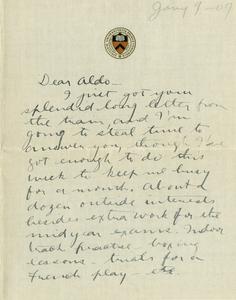 Jany 9-07
Dear Aldo—
I just got your
splendid long letter from
the train, and I'm
going to steal time to
answer you, though I've
got enough to do this
week to keep me busy
for a month. About a
dozen outside interests
besides extra work for the
midyear exams. Indoor
track practise - boxing
lessons - trials for a
French play - etc.